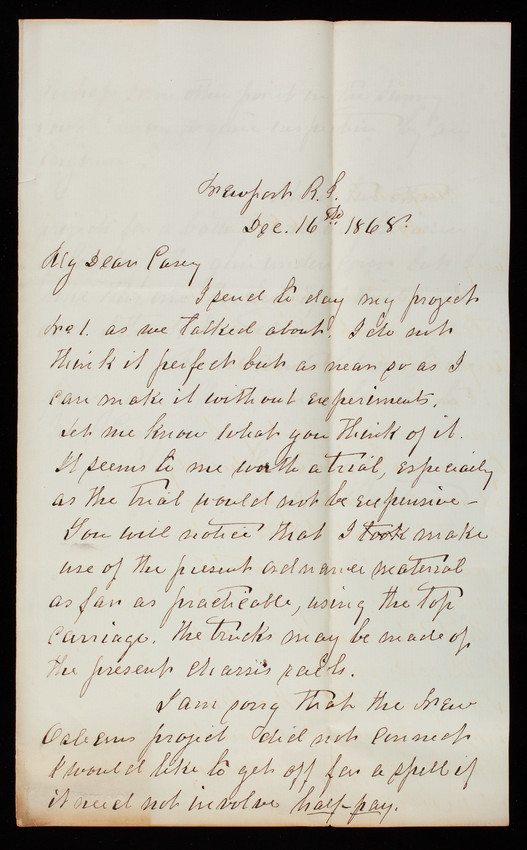 Newport R.I.
Dec. 16th 1868.
My Dear Casey
I send to day my project
No 1. as we talked about. I do not
think it perfect but as near so as I
can make it without experiments.
Let me know what you think of it.
It seems to me worth a trial, especially
as the trial would not be expensive -
You will notice that I took make
use of the present ordnance material
as far as practicable, using the top
carriage. The trucks may be made of
the present chassis rails.
I am sorry that the New
Orleans project did not connect
I would like to get off for a spell if
it need not involve half-pay.